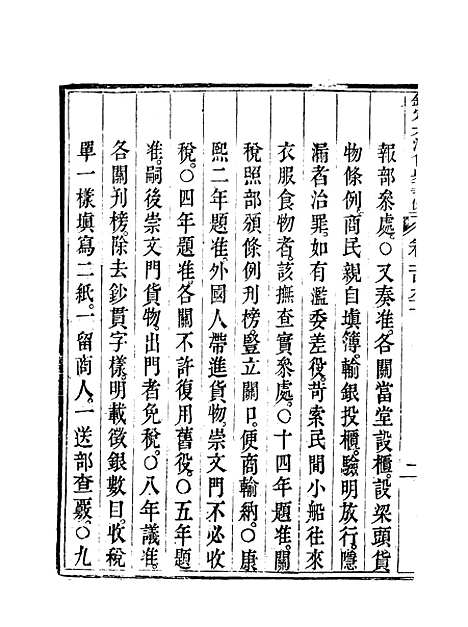 報部叅處。○又奏准各關當堂設櫃。設梁頭貨
物條例。商民親自填簿。輸銀投櫃。驗明放行。隱
漏者治罪。如有濫委差役。苛索民間小船往來
衣服食物者。該撫查實叅處。○十四年題准。關
稅照部頒條例刋榜豎立關口。便商輸納。○康
熙二年題准。外國人帶進貨物。崇文門不必收
稅。○四年題准。各關不許復用舊役。○五年題
准。嗣後崇文門貨物。出門者免稅。○八年議准。
各關刋榜。除去鈔貫字樣。明載徵銀數目。收稅
單一樣填寫二紙。一留商人。一送部查覈。○九